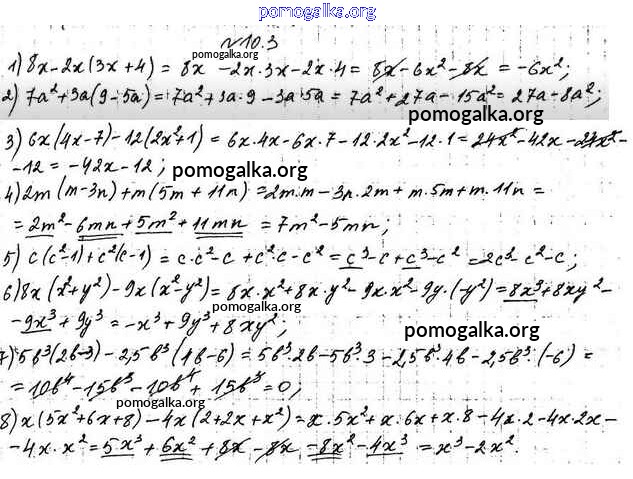 pomogalka.org
№10.3
pomogalka.org
1) 8x-2x(3x+4) = 8x -2x·3x-2x·4 = 8x-6x²-8x = -6x²;
2) 7a²+3a(9-5a)=7a²+3a·9-3a·5a = 7a²+27a-15a²=27a-8a²;
pomogalka.org
3) 6x(4x-7)-12(2x²+1) = 6x·4x-6x·7-12·2x²-12·1=24x²-42x-24x²-
-12 = -42x-12;
pomogalka.org
4) 2m(m-3n)+m(5m+11n)=2m·m-3n·2m+m·5m+m·11n =
= 2m²-6mn+5m²+11mn = 7m²-5mn;
5) c(c²-1)+c²(c-1) = c·c²-c+c²·c-c² = c³-c+c³-c² =2c³-c²-c;
6) 8x(x²+y²)-9x(x²-y²)=8x·x²+8x·y²-9x·x²-9y·(-y²)=8x³+8xy²-
pomogalka.org
-9x³+9y³=-x³+9y³+8xy²;
pomogalka.org
7) 5b³(2b-3)-2,5b³(4b-6)=5b³·2b-5b³·3-2,5b³·4b-2,5b³·(-6) =
= 10b⁴-15b³-10b⁴+15b³=0;
pomogalka.org
8) x(5x²+6x+8)-4x(2+2x+x²)=x·5x²+x·6x+x·8-4x·2-4x·2x-
-4x·x²=5x³+6x²+8x-8x-8x²-4x³ = x³-2x².